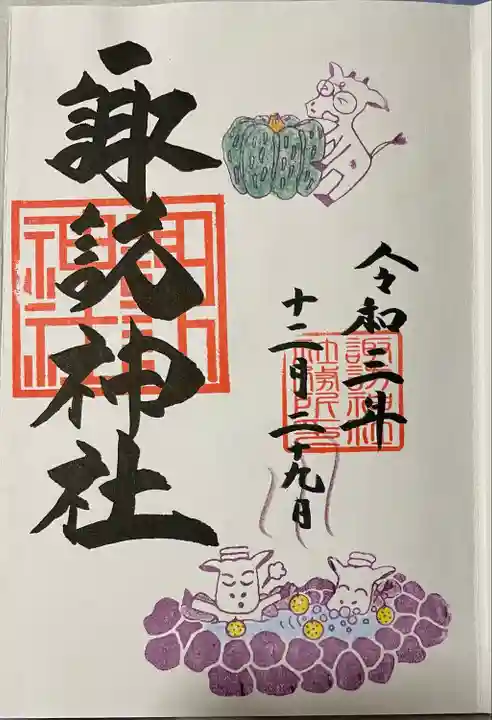 令和三年
十二月二十九日
諏訪神社
諏訪神社
社務所印
諏訪
神社